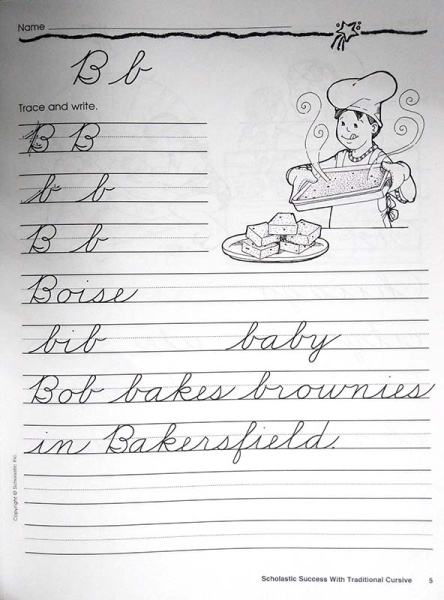 Name
B b
Trace and write.
B B
b b
B b
Boise
bib baby
Bob bakes brownies
in Bakersfield.
Copyright © Scholastic Inc.
Scholastic Success With Traditional Cursive 5